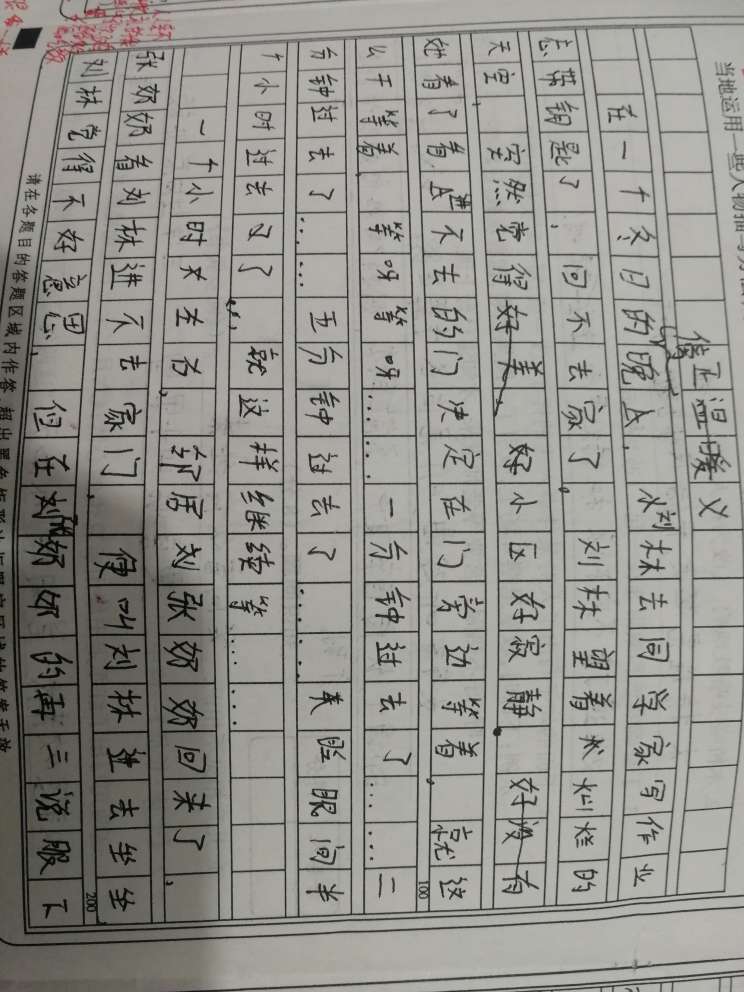 当地运用一些人物描写方法
正温暖义
在一个冬日的晚上,刘林去同学家写作业
忘带钥匙了,回不去家了。刘林望着灿烂的
天空,突然觉得好美,好小区好寂静。好没有
她看了看进不去的门决定在门旁边等着,就这
100
么干等着,等呀等呀……一分钟过去了……二
分钟过去了……五分钟过去了……眨眼间半
个小时过去了……就这样继续等……
一个小时左右,邻居刘张奶奶回来了,
张奶奶看刘林进不去家门,便叫刘林进去坐坐
200
刘林觉得不好意思,但在奶奶的再三说服下
请在各题目的答题区域内作答,超出黑色矩形边框限定区域的答案无效